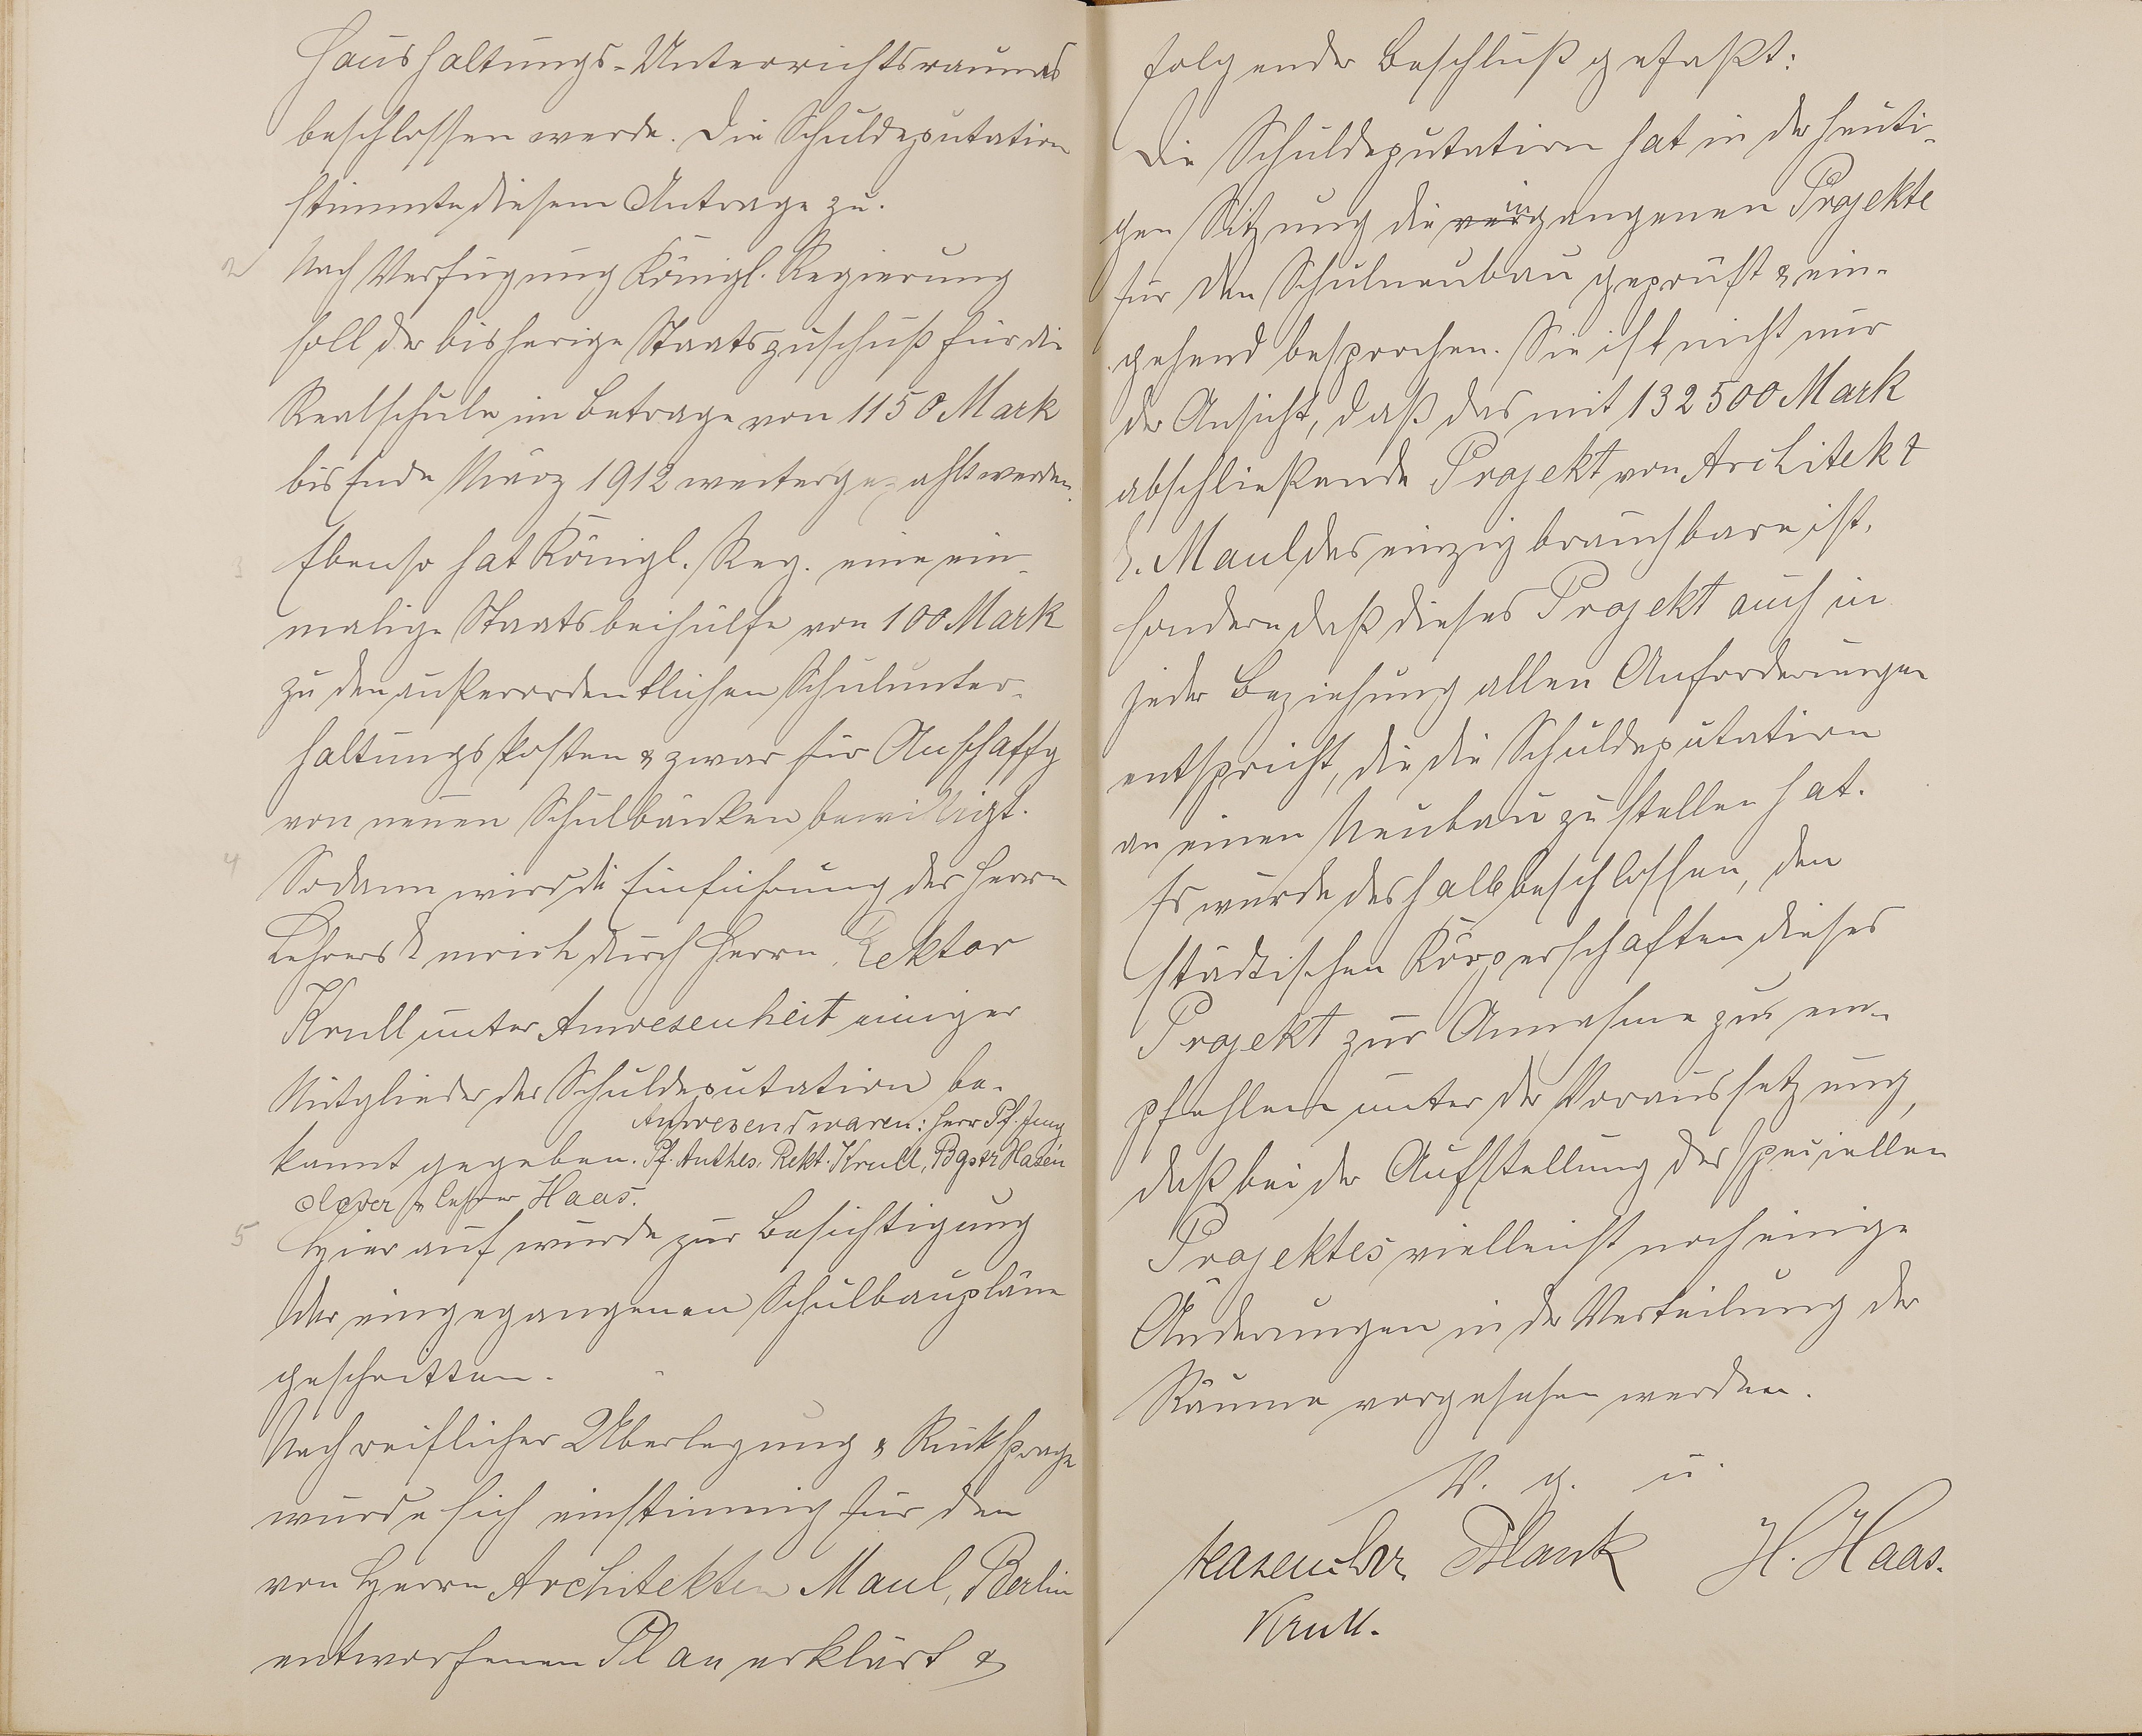 Haushaltungs-Unterrichtsraumes
beschlossen werde. Die Schuldeputation
stimmte diesem Antrage zu.
2 Nach Verfügung Königl. Regierung
soll der bisherige Staatszuschuß für die
Realschule im Betrage von 1150 Mark
bis Ende März 1912 weitergezahlt werden.
3 Ebenso hat Königl. Reg. eine ein-
malige Staatsbeihülfe von 100 Mark
zu den außerordentlichen Schulunter-
haltungskosten & zwar für Anschaffg
von neuen Schulbänken bewilligt.
4 Sodann wird die Einführung des Herrn
Lehrers durch Herrn Rektor
Krull unter Anwesenheit einiger
Mitglieder der Schuldeputation be-
Anwesend waren: Herr Pf. Jung
kannt gegeben. Pf. Anthes, Rekt. Krull, Bgstr Hasen
clever & Lehrer Haas.
5 Hierauf wurde zur Besichtigung
der eingegangenen Schulbaupläne
geschritten.
Nach reiflicher Überlegung & Rücksprache
wurde sich einstimmig für den
von Herrn Architekten Maul, Berlin
entworfenen Plan erklärt &
folgender Beschluß gefaßt:
Die Schuldeputation hat in der heuti-
gen Sitzung die eingegangenen Projekte
für den Schulneubau geprüft & ein-
gehend besprochen. Sie ist nicht nur
der Ansicht, daß das mit 132500 Mark
abschließende Projekt von Architekt
Maul das einzig brauchbare ist,
sondern daß dieses Projekt auch in
jeder Beziehung allen Anforderungen
entspricht, die die Schuldeputation
an einen Neubau zu stellen hat.
Es wurde deshalb beschlossen, den
städtischen Körperschaften dieses
Projekt zur Annahme zu em-
pfehlen unter der Voraussetzung,
daß bei der Aufstellung des speciellen
Projektes vielleicht noch einige
Änderungen in der Verteilung der
Räume vorgesehen werden.
V. g. u.
Hasenclever Blank H. Haas.
Krull.